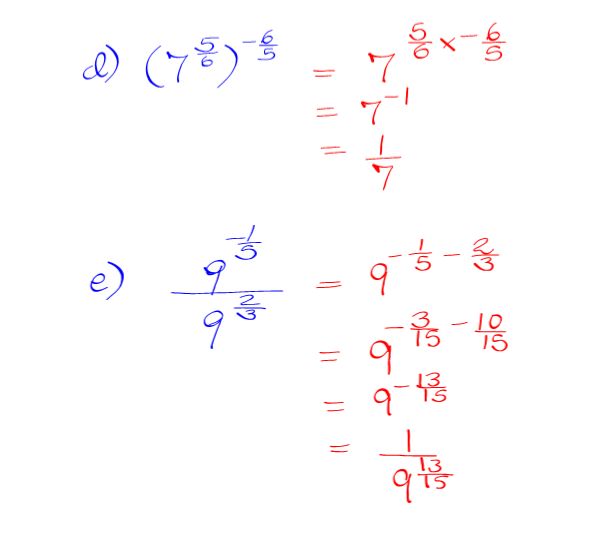 d) (7^(5/6))^(-6/5) = 7^(5/6 × -6/5)
= 7^(-1)
= 1/7
e) 9^(-1/5) / 9^(2/3) = 9^(-1/5 - 2/3)
= 9^(-3/15 - 10/15)
= 9^(-13/15)
= 1/9^(13/15)